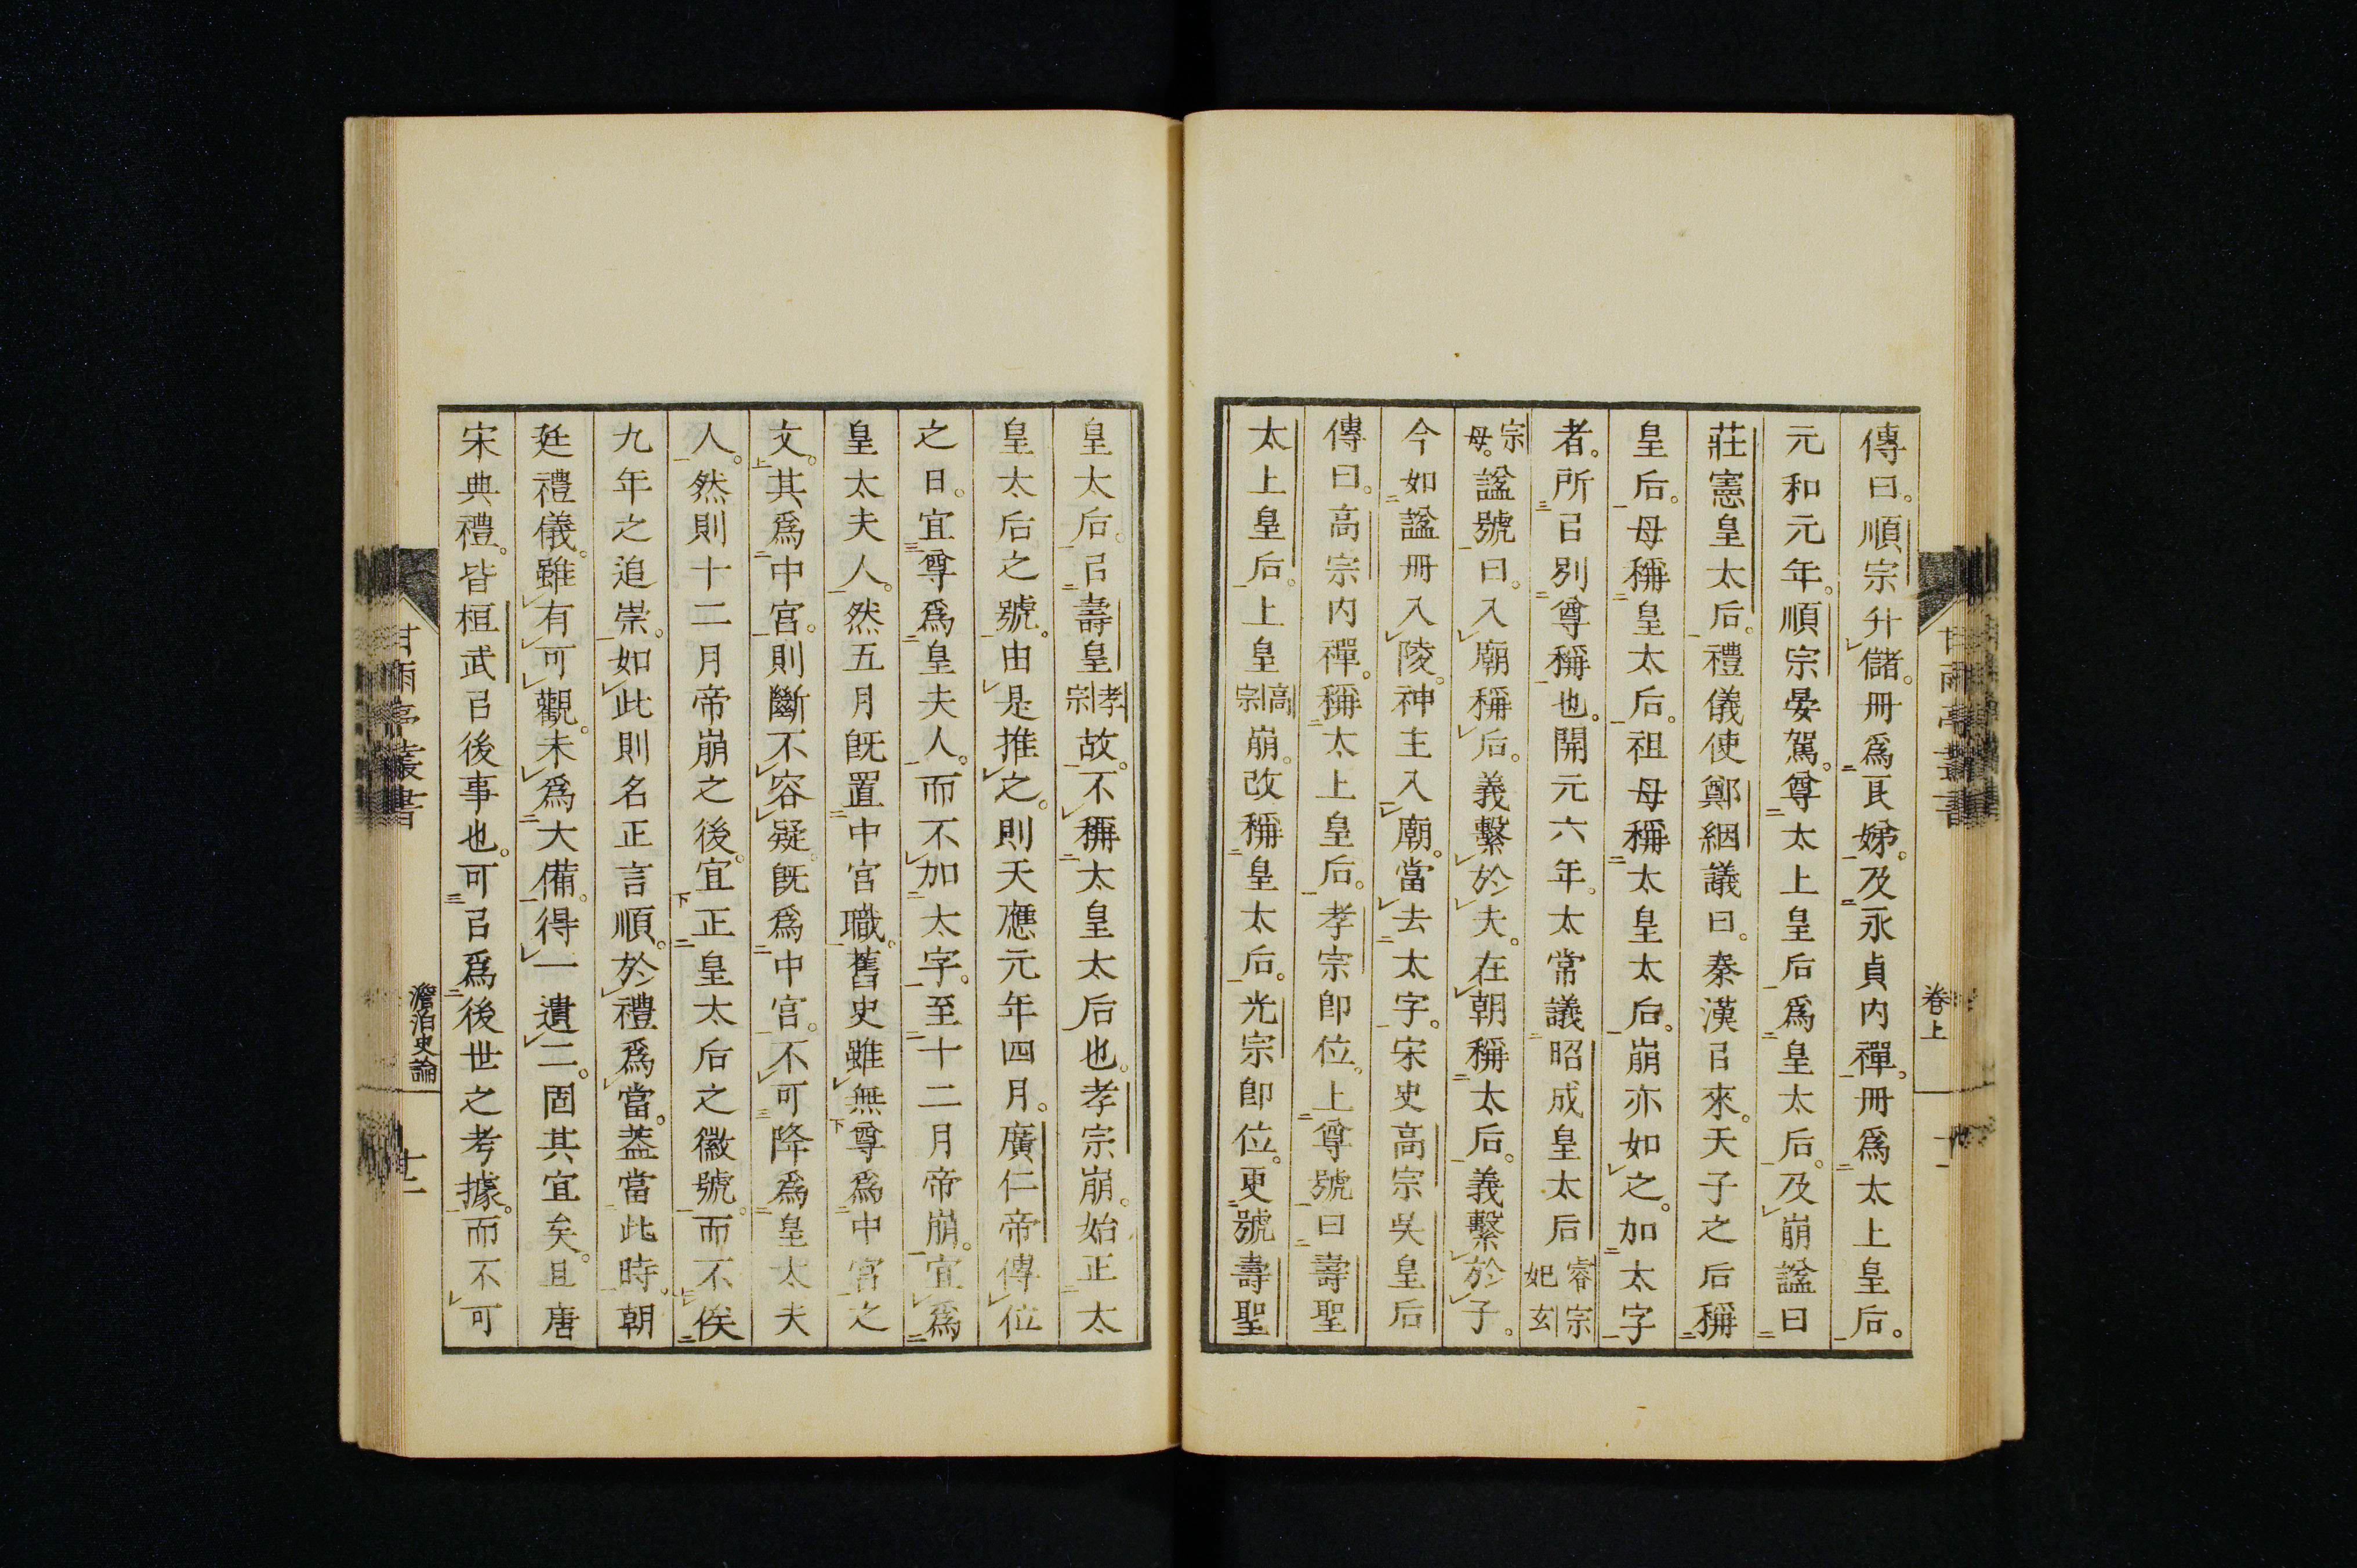 傳曰。順宗升儲。冊爲良娣。及永貞内禪。冊爲太上皇后。
元和元年。順宗晏駕。尊太上皇后爲皇太后。及崩謚曰
莊憲皇太后。禮儀使鄭絪議曰。秦漢㠯來。天子之后稱
皇后。母稱皇太后。祖母稱太皇太后。崩亦如之。加太字
者。所㠯別尊稱也。開元六年。太常議昭成皇太后睿宗妃玄
宗母。謚號曰。入廟稱后。義繫於夫。在朝稱太后。義繫於子。
今如謚冊入陵。神主入廟。當去太字。宋史高宗吳皇后
傳曰。高宗内禪。稱太上皇后。孝宗卽位。上尊號曰壽聖
太上皇后。上皇高宗崩。改稱皇太后。光宗卽位。更號壽聖
卷上
皇太后。㠯壽皇孝宗故。不稱太皇太后也。孝宗崩。始正太
皇太后之號。由是推之。則天應元年四月。廣仁帝傳位
之日。宜尊爲皇夫人。而不加太字。至十二月帝崩。宜爲
皇太夫人。然五月既置中宮職。舊史雖無尊爲中宮之
文。其爲中宮。則斷不容疑。既爲中宮。不可降爲皇太夫
人。然則十二月帝崩之後。宜正皇太后之徽號。而不俟
九年之追崇。如此則名正言順。於禮爲當。葢當此時。朝
廷禮儀。雖有可觀。未爲大備。得一遺二。固其宜矣。且唐
宋典禮。皆桓武㠯後事也。可㠯爲後世之考據。而不可
甘雨亭叢書
澹泊史論
十二